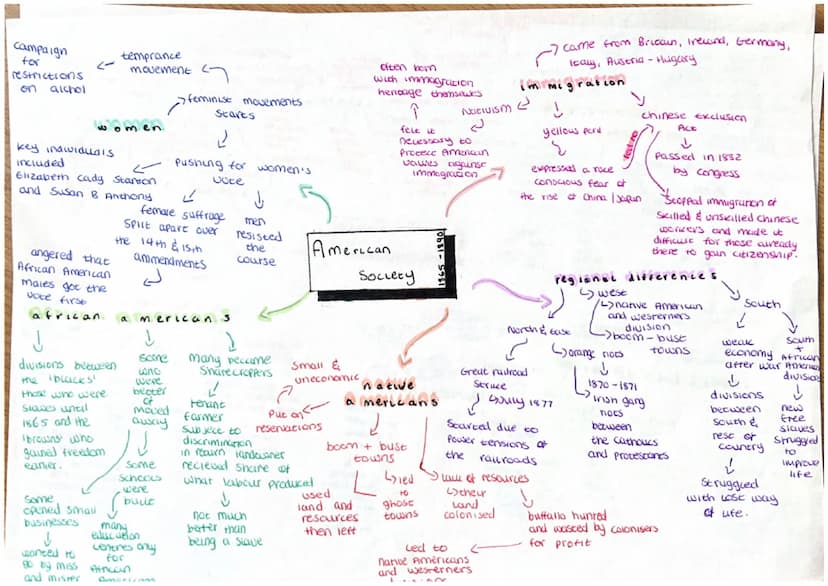 campaign
for
restrictions
on alchol
temprance
movement
feminist movements
starts
women
key individuals
included
Elizabeth Cady Stanton
and Susan B Anthony
pushing for women's
vote
female suffrage
split apart over
the 14th & 15th
ammendments
men
resisted
the
course
angered that
African American
males got the
vote first
often born
with immigration
heritage themselves
Nativism
felt it
necessary to
protect American
values against
immigration
immigration
came from Britain, Ireland, Germany,
Italy, Austria-Hugary
yellow peril
expressed a race
conscious fear of
the rise of China/Japan
Chinese exclusion
Act
Passed in 1882
by congress
stopped immigration of
skilled & unskilled Chinese
workers and made it
difficult for those already
there to gain citizenship.
American
Society
1865-1890
african americans
divisions between
the 'blacks'
those who were
slaves until
1865 and the
'browns' who
gained freedom
earlier.
some
opened small
businesses
wanted to
go by miss
and mister
some
who
were
better of
moved
away
some
schools
were
built
many
education
centres only
for
African
Americans
many became
sharecroppers
tenant
farmer
subject to
discrimination
in return landowner
recieved share of
what labour produced
not much
better than
being a slave
native
americans
small &
uneconomic
Put on
reservations
boom + bust
towns
used
land and
resources
then left
led
to
ghost
towns
lack of resources
their
land
colonised
buffalo hunted
and wasted by colonisers
for profit
Led to
native Americans
and westerners
regional differences
west
native American
and westerners
division
boom-bust
towns
North & east
Great railroad
strike
July 1877
started due to
power tensions of
the railroads
orange riots
1870-1871
Irish gang
riots
between
the catholics
and protestants
South
weak
economy
after war
divisions
between
south &
rest of
country
struggled
with lost way
of life.
South
+
African
American
division
new
free
slaves
struggled
to
improve
life